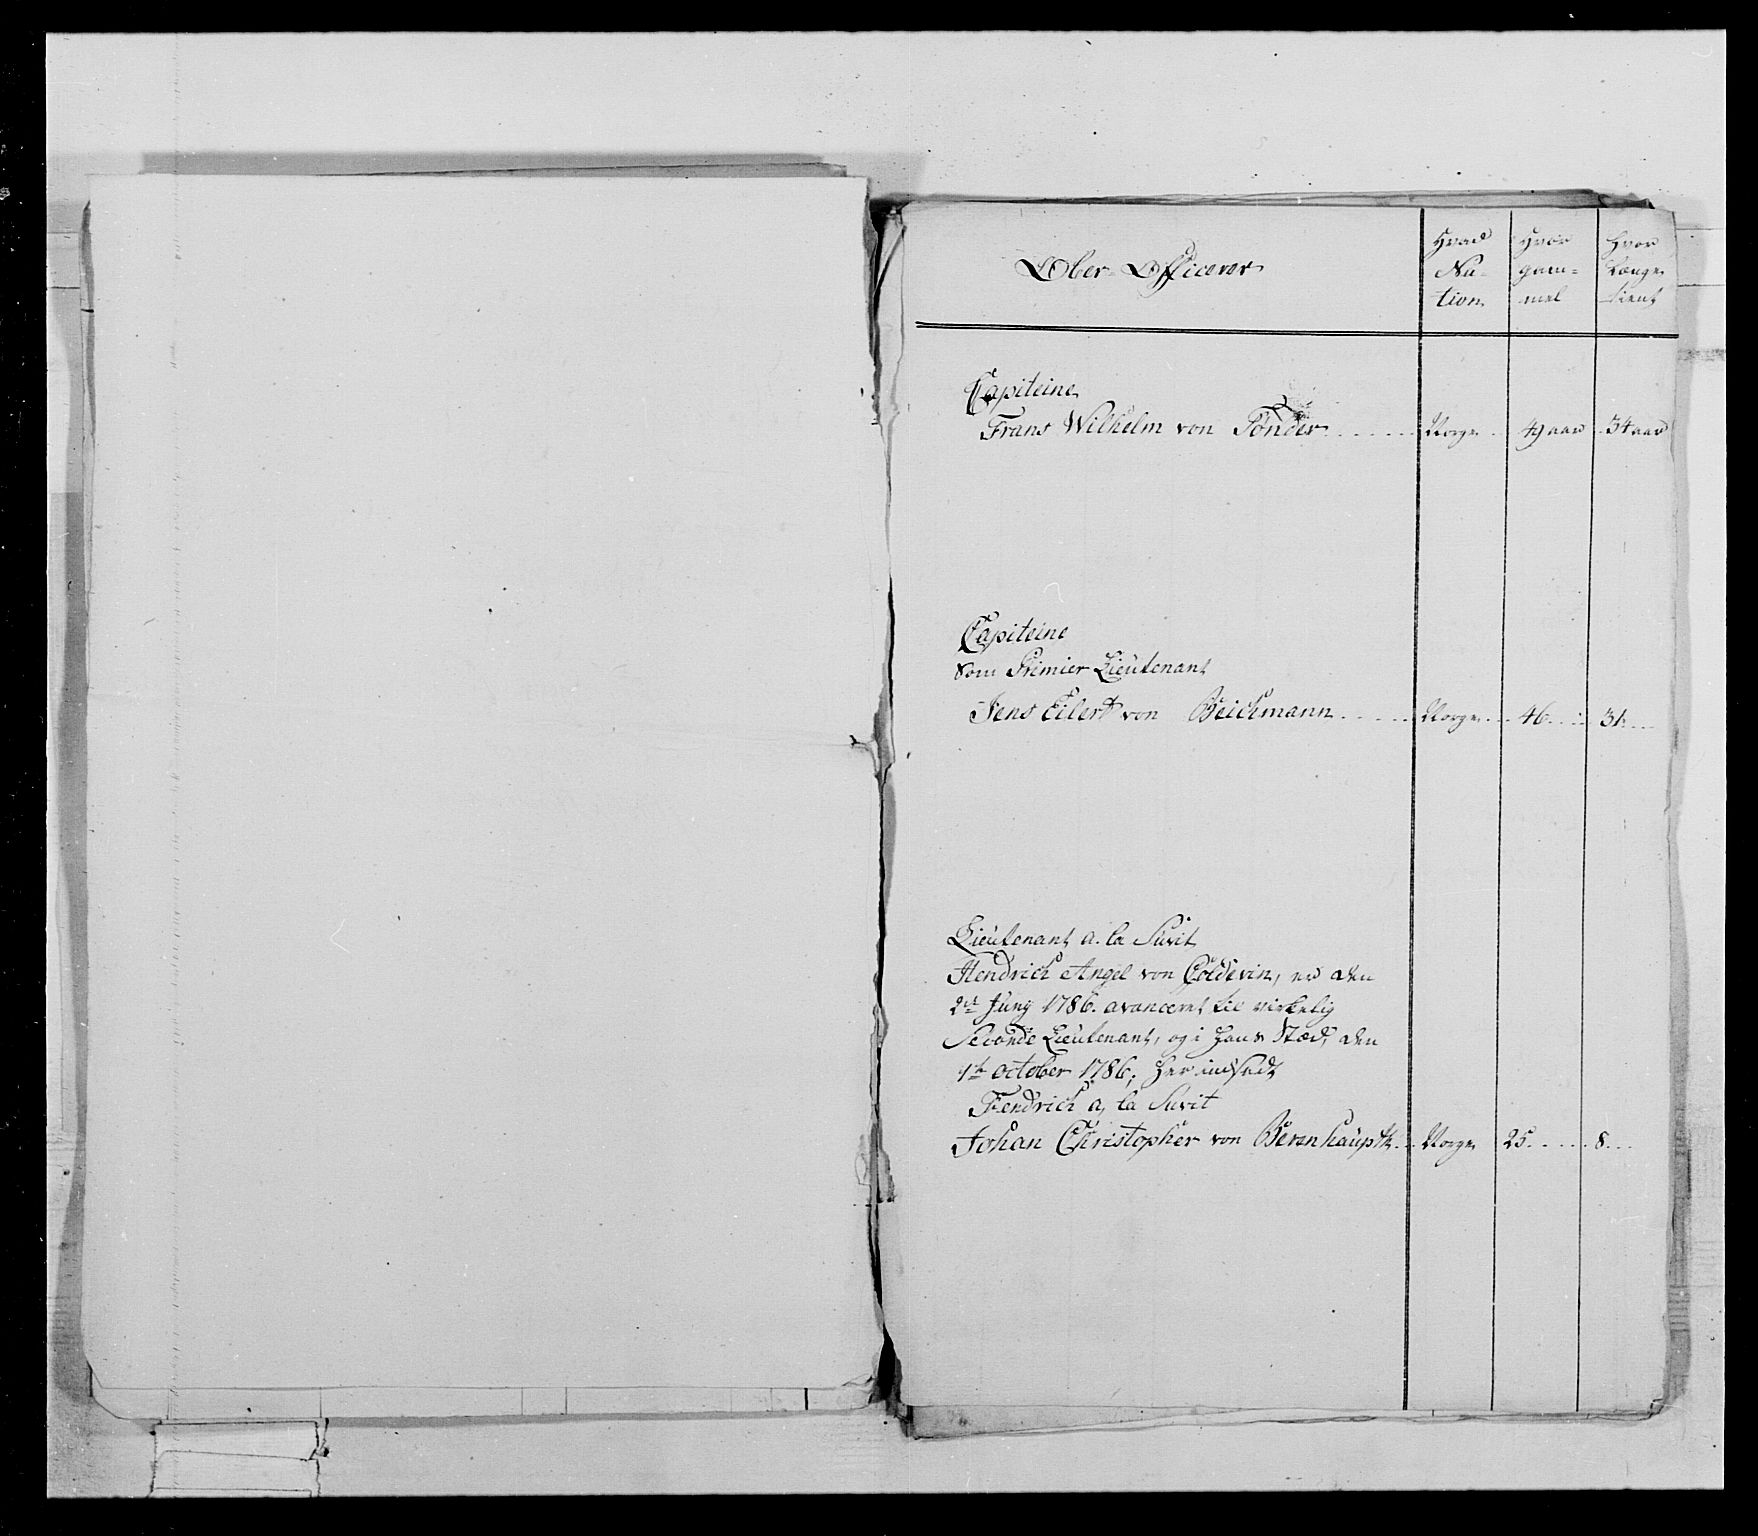 Ober-Officerer
Hvad Na-tion
Hvor gam-mel
Hvor Længe tient
Capiteine
Frans Wilhelm von Tønder Norge 49 aar 34 aar
Capiteine
Som Premier Lieutenant
Jens Eilert von Beichmann Norge 46 31
Lieutenant a la Suit
Hendrich Angel von Coldevin, er den
2det Juny 1786. avanceret til virkelig
Seconde Lieutenant, og i hans Stæd, den
1te october 1786, her indsadt
Fendrich a la Suit
Johan Christopher von Berenhaupth Norge 25 8